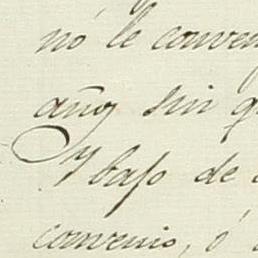 nó le conven
años sin q
Y bajo de
convenio, ó